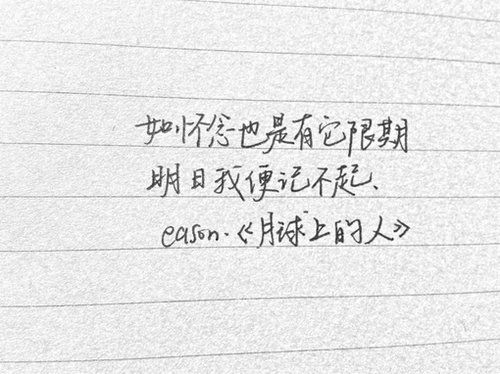 如怀念也是有它限期
明日我便记不起、
eason.《月球上的人》